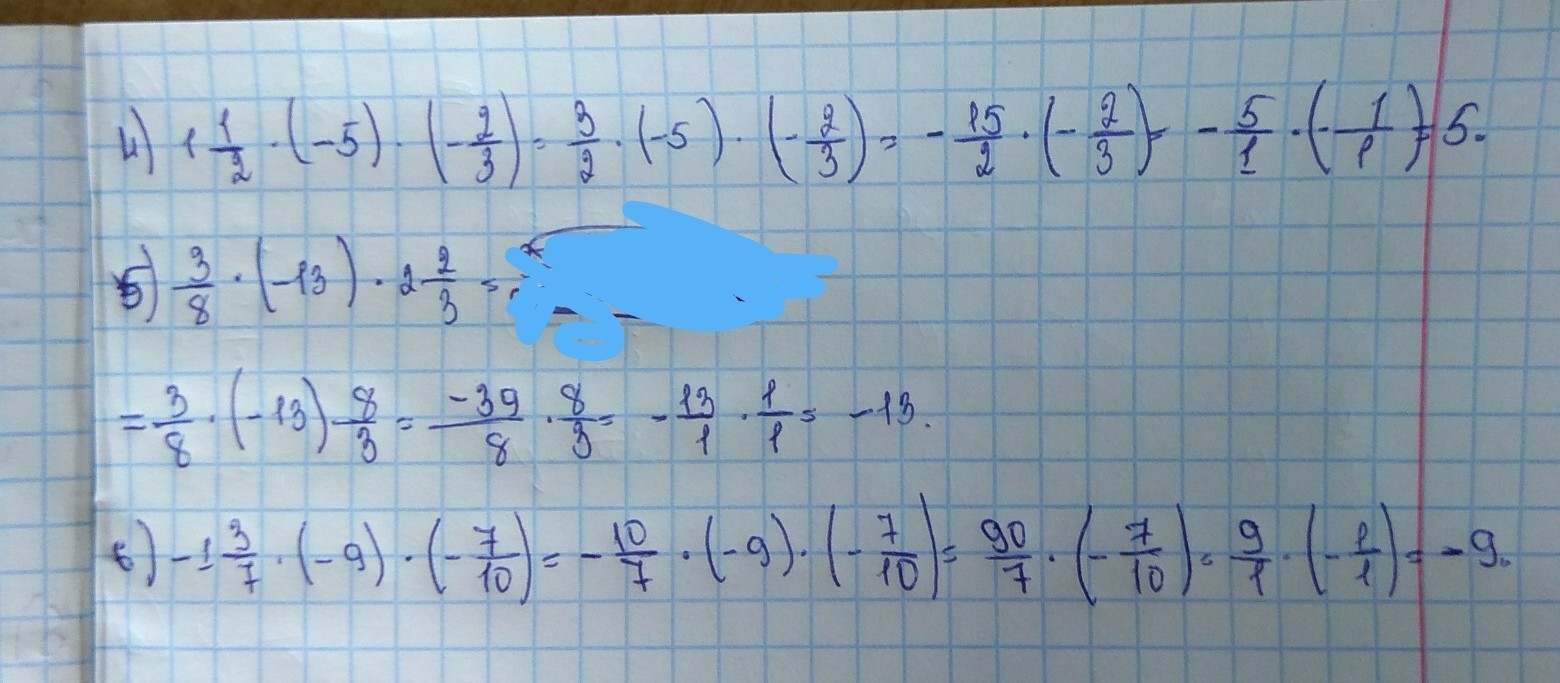 4) 1 1/2 · (-5) · (- 2/3) = 3/2 · (-5) · (- 2/3) = - 15/2 · (- 2/3) = - 5/1 · (- 1/1) = 5.
5) 3/8 · (-13) · 2 2/3 =
= 3/8 · (-13) 8/3 = -39/8 · 8/3 = - 13/1 · 1/1 = -13.
6) -1 3/7 · (-9) · (- 7/10) = - 10/7 · (-9) · (- 7/10) = 90/7 · (- 7/10) = 9/1 · (- 1/1) = -9.